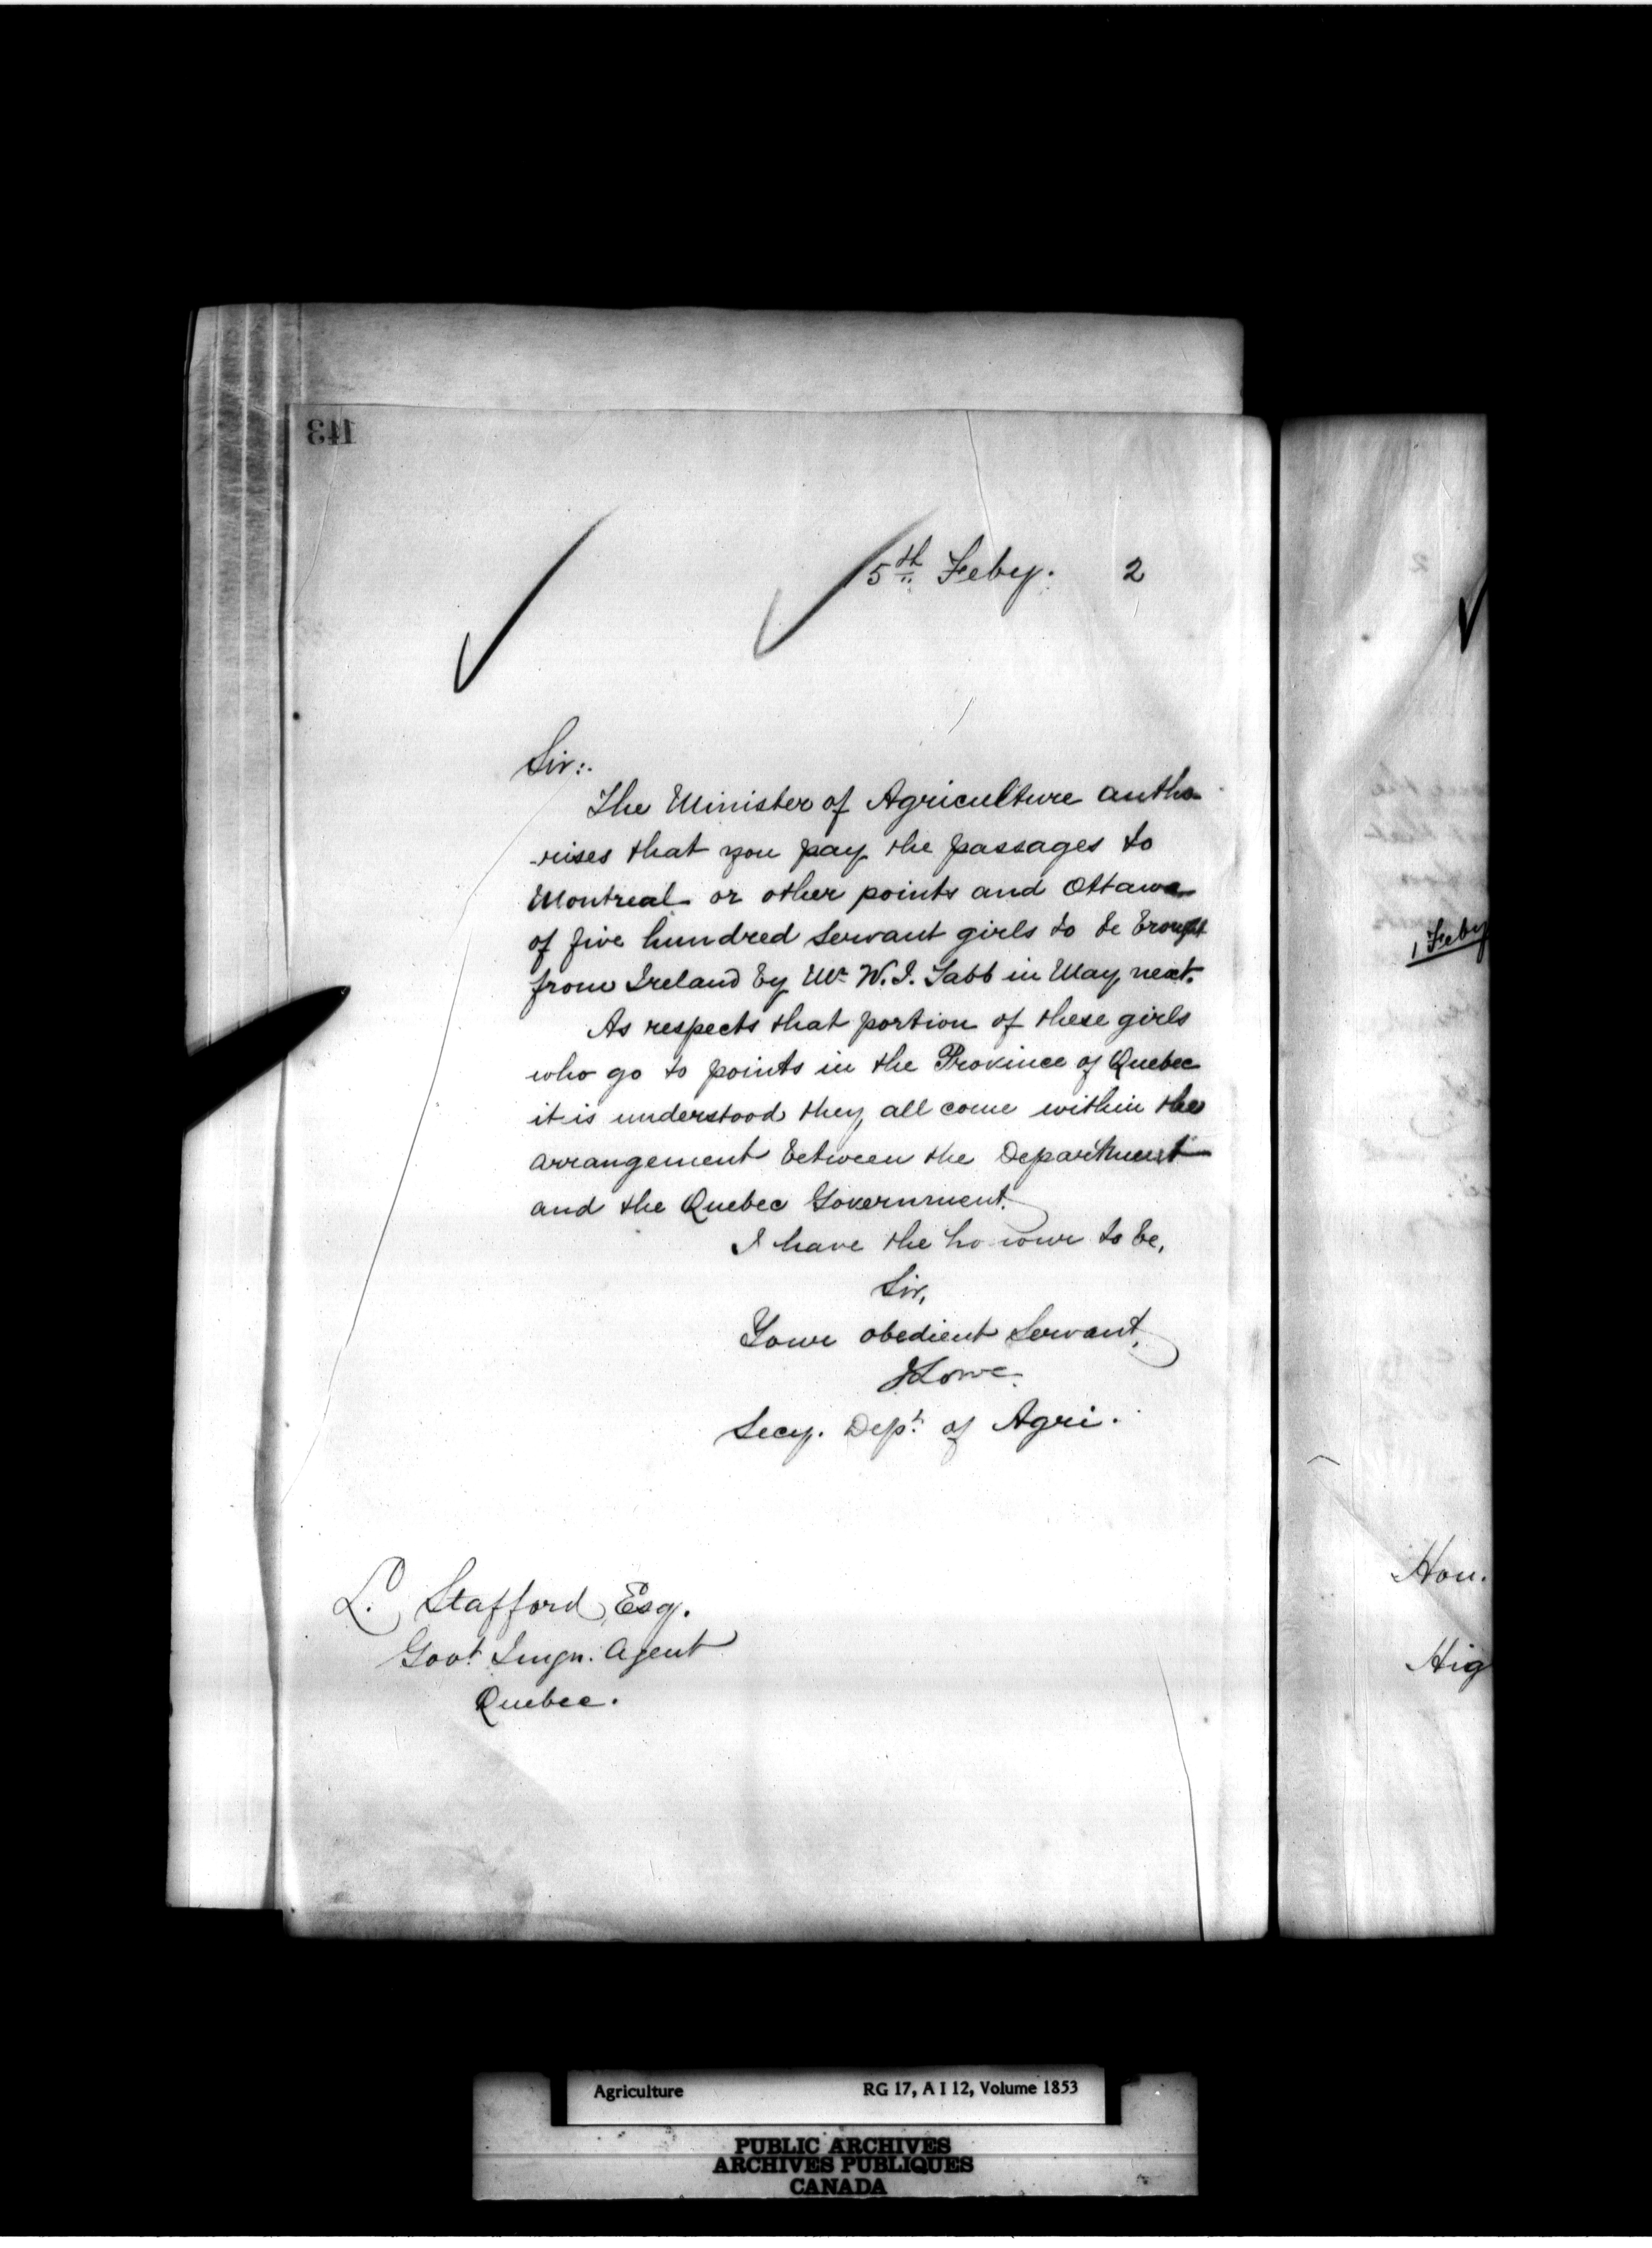 143
5th Feby. 2
Sir:.
The Minister of Agriculture autho
-rises that you pay the passages to
Montreal or other points and Ottawa
of five hundred servant girls to be brought
from Ireland by Mr W. J. Tabb in May next.
As respects that portion of these girls
who go to points in the Province of Quebec
it is understood they all come within the
arrangement between the Department
and the Quebec Government.
I have the honour to be,
Sir,
Your obedient Servant,
JLowe
Secy. Dept. of Agri.
L. Stafford, Esq.
Govt. Imgn. Agent
Quebec.
1 Feby
Hon.
Hig
Agriculture RG 17, A I 12, Volume 1853
PUBLIC ARCHIVES
ARCHIVES PUBLIQUES
CANADA